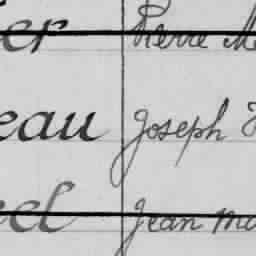 er Pierre M
eau Joseph
el Jean Ma